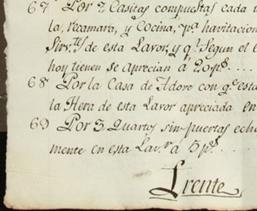 67 Por 7 Casitas compuestas cada u
la, recamara, y Cocina, pa. havitacion
Sirv.tes de esta Lavor, y q.e Segun el e
hoy tienen se aprecian á 20 p.s
68 Por la Casa de Adoro con q.e esta
la Hera de esta Lavor apreciada en
69 Por 3 Quartos sin puertas eche
mente en esta Lav.r á 5 p.s
Frente